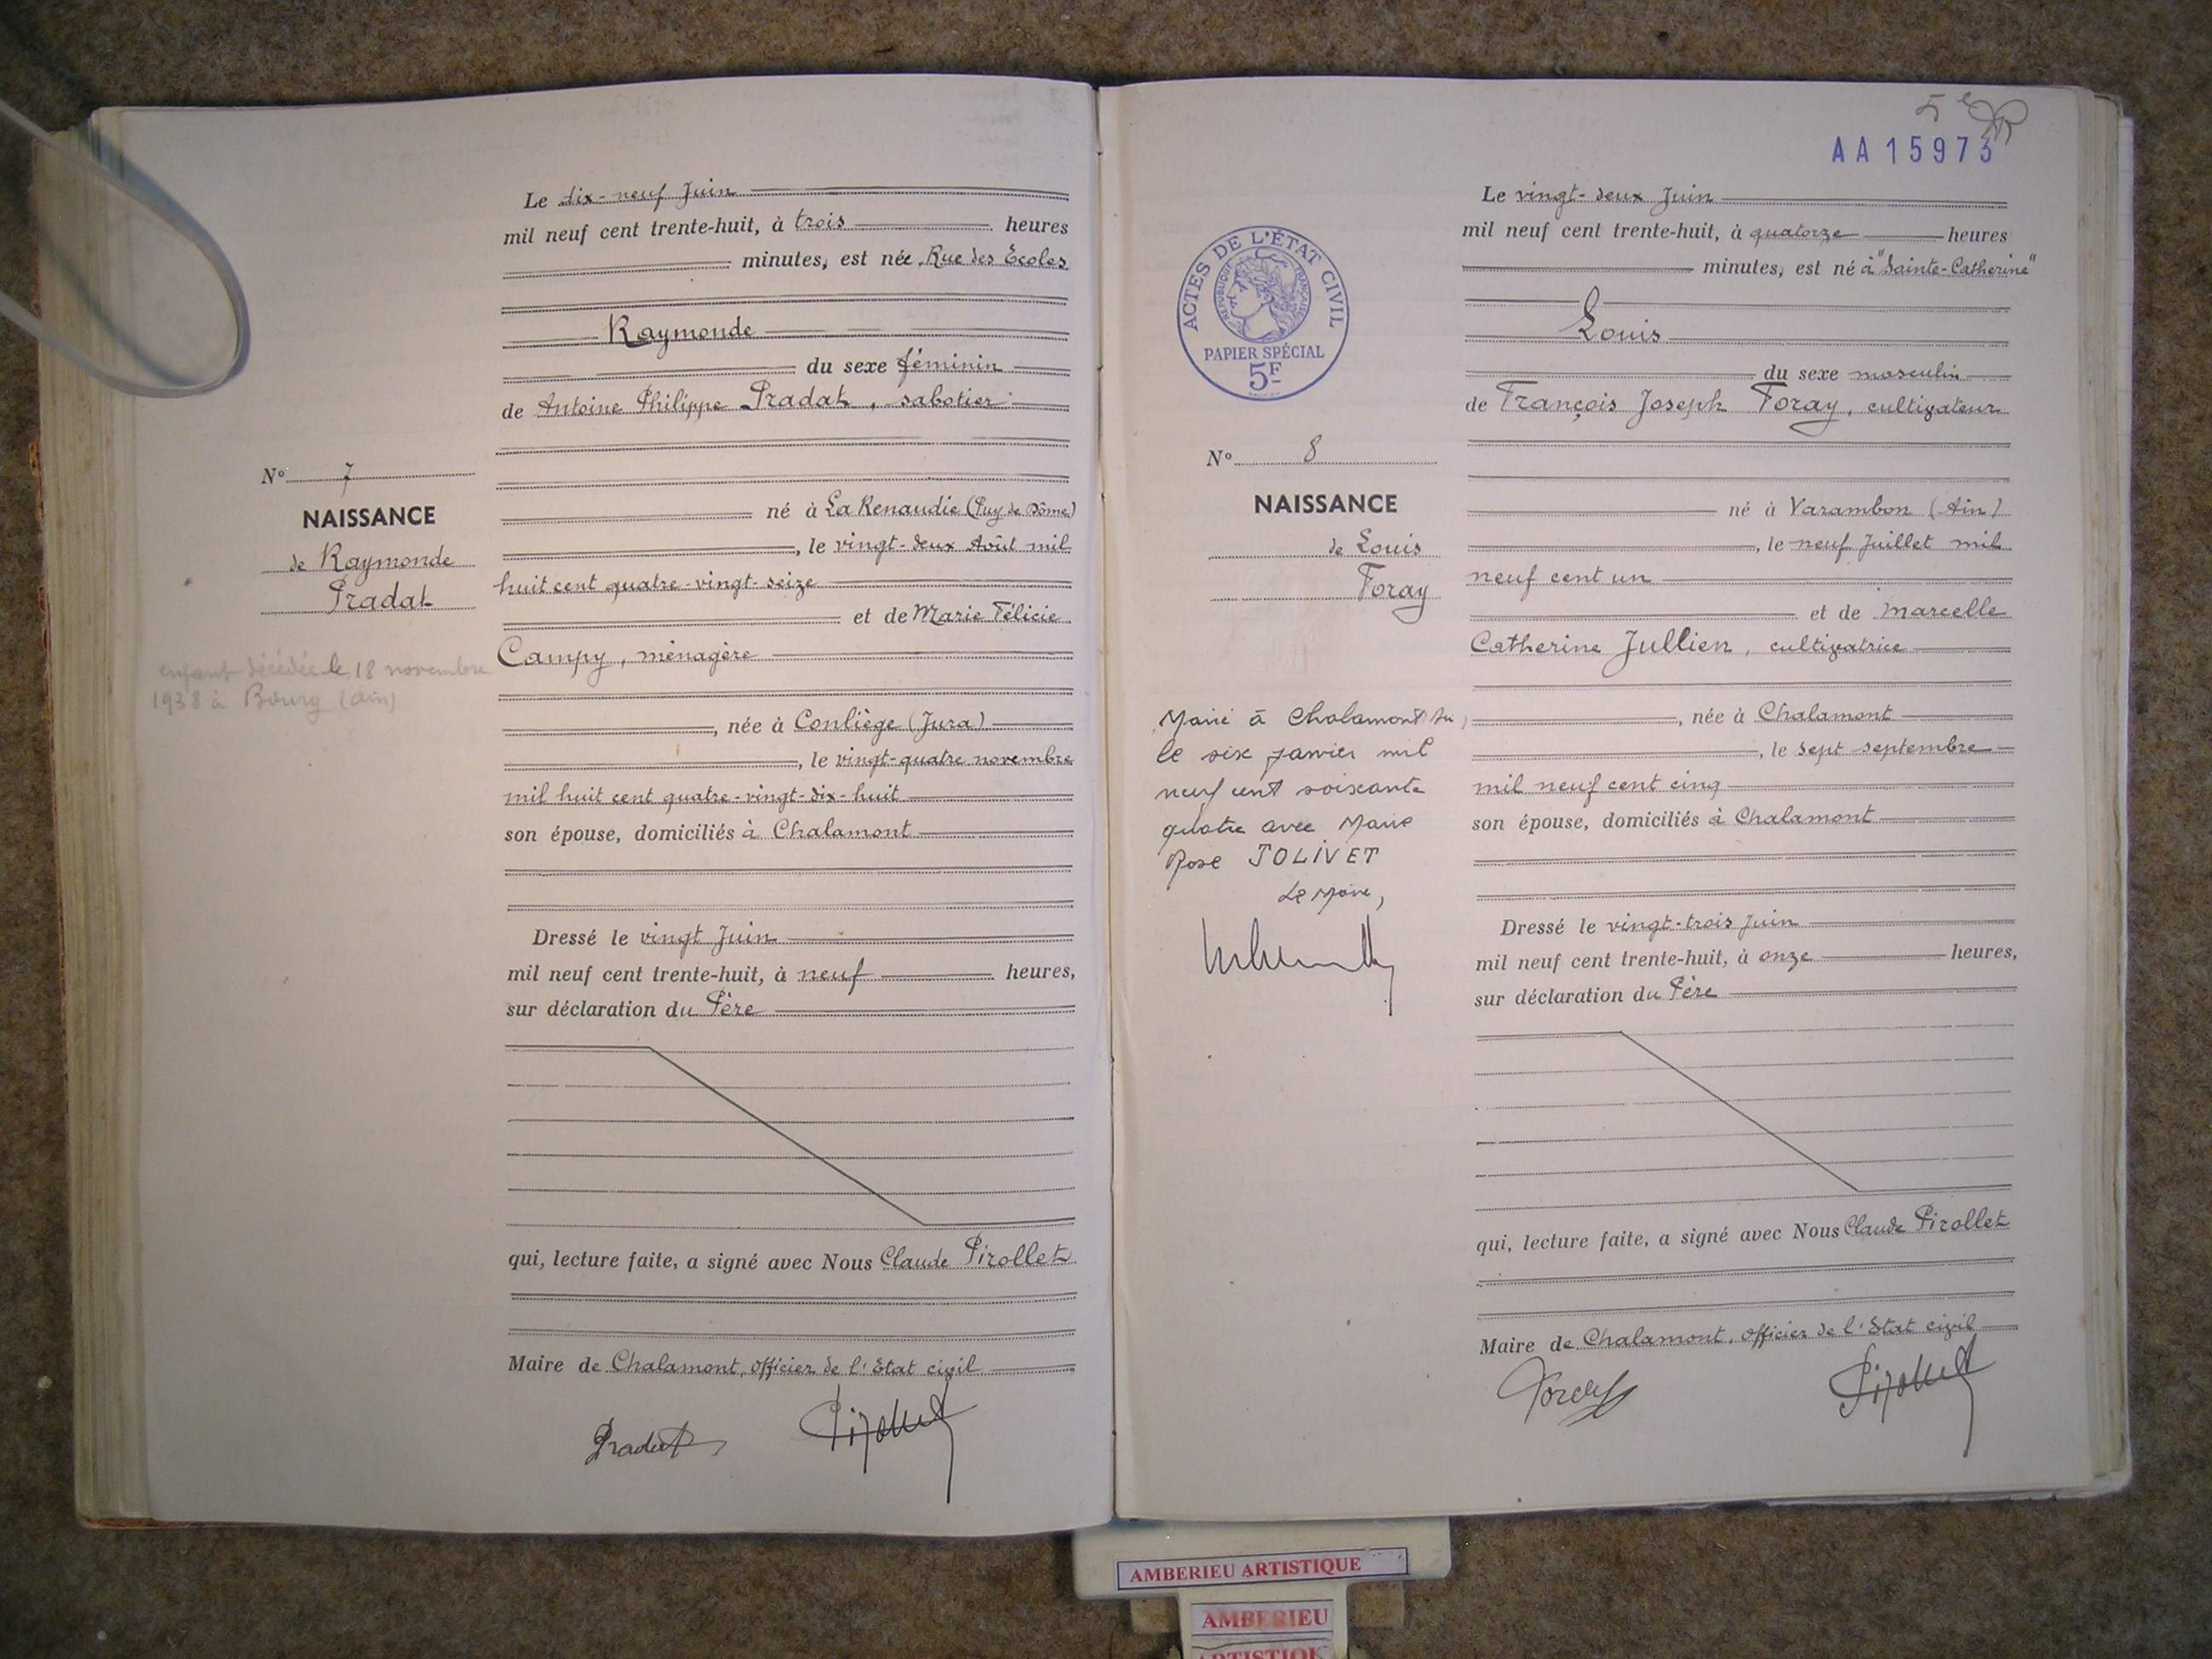 Le dix-neuf Juin
mil neuf cent trente-huit, à trois heures
minutes, est née Rue des Écoles
Raymonde
du sexe féminin
de Antoine Philippe Pradat, sabotier
né à La Renaudie (Puy de Dôme)
, le vingt-deux Août mil
huit cent quatre-vingt-seize
et de Marie Félicie
Campy, ménagère
, née à Conliège (Jura)
, le vingt-quatre novembre
mil huit cent quatre-vingt-dix-huit
son épouse, domiciliés à Chalamont
Dressé le vingt Juin
mil neuf cent trente-huit, à neuf heures,
sur déclaration du Père
qui, lecture faite, a signé avec Nous Claude Pirollet
Maire de Chalamont, officier de l'Etat civil
Pradat Pirollet
N° 7
NAISSANCE
de Raymonde
Pradat
enfant décédée le 18 novembre
1938 à Bourg (Ain)
5e
AA15973
ACTES DE L'ÉTAT CIVIL
RÉPUBLIQUE FRANÇAISE
PAPIER SPÉCIAL
5F
N° 8
NAISSANCE
de Louis
Foray
Marié à Chalamont
le six janvier mil
neuf cent soixante
quatre avec Marie
Rose JOLIVET
Le Maire,
Le vingt-deux Juin
mil neuf cent trente-huit, à quatorze heures
minutes, est né à "Sainte-Catherine"
Louis
du sexe masculin
de François Joseph Foray, cultivateur
né à Varambon (Ain)
, le neuf Juillet mil
neuf cent un
et de Marcelle
Catherine Jullien, cultivatrice
, née à Chalamont
, le sept septembre
mil neuf cent cinq
son épouse, domiciliés à Chalamont
Dressé le vingt-trois Juin
mil neuf cent trente-huit, à onze heures,
sur déclaration du Père
qui, lecture faite, a signé avec Nous Claude Pirollet
Maire de Chalamont, officier de l'Etat civil
Foray Pirollet
AMBERIEU ARTISTIQUE
AMBERIEU